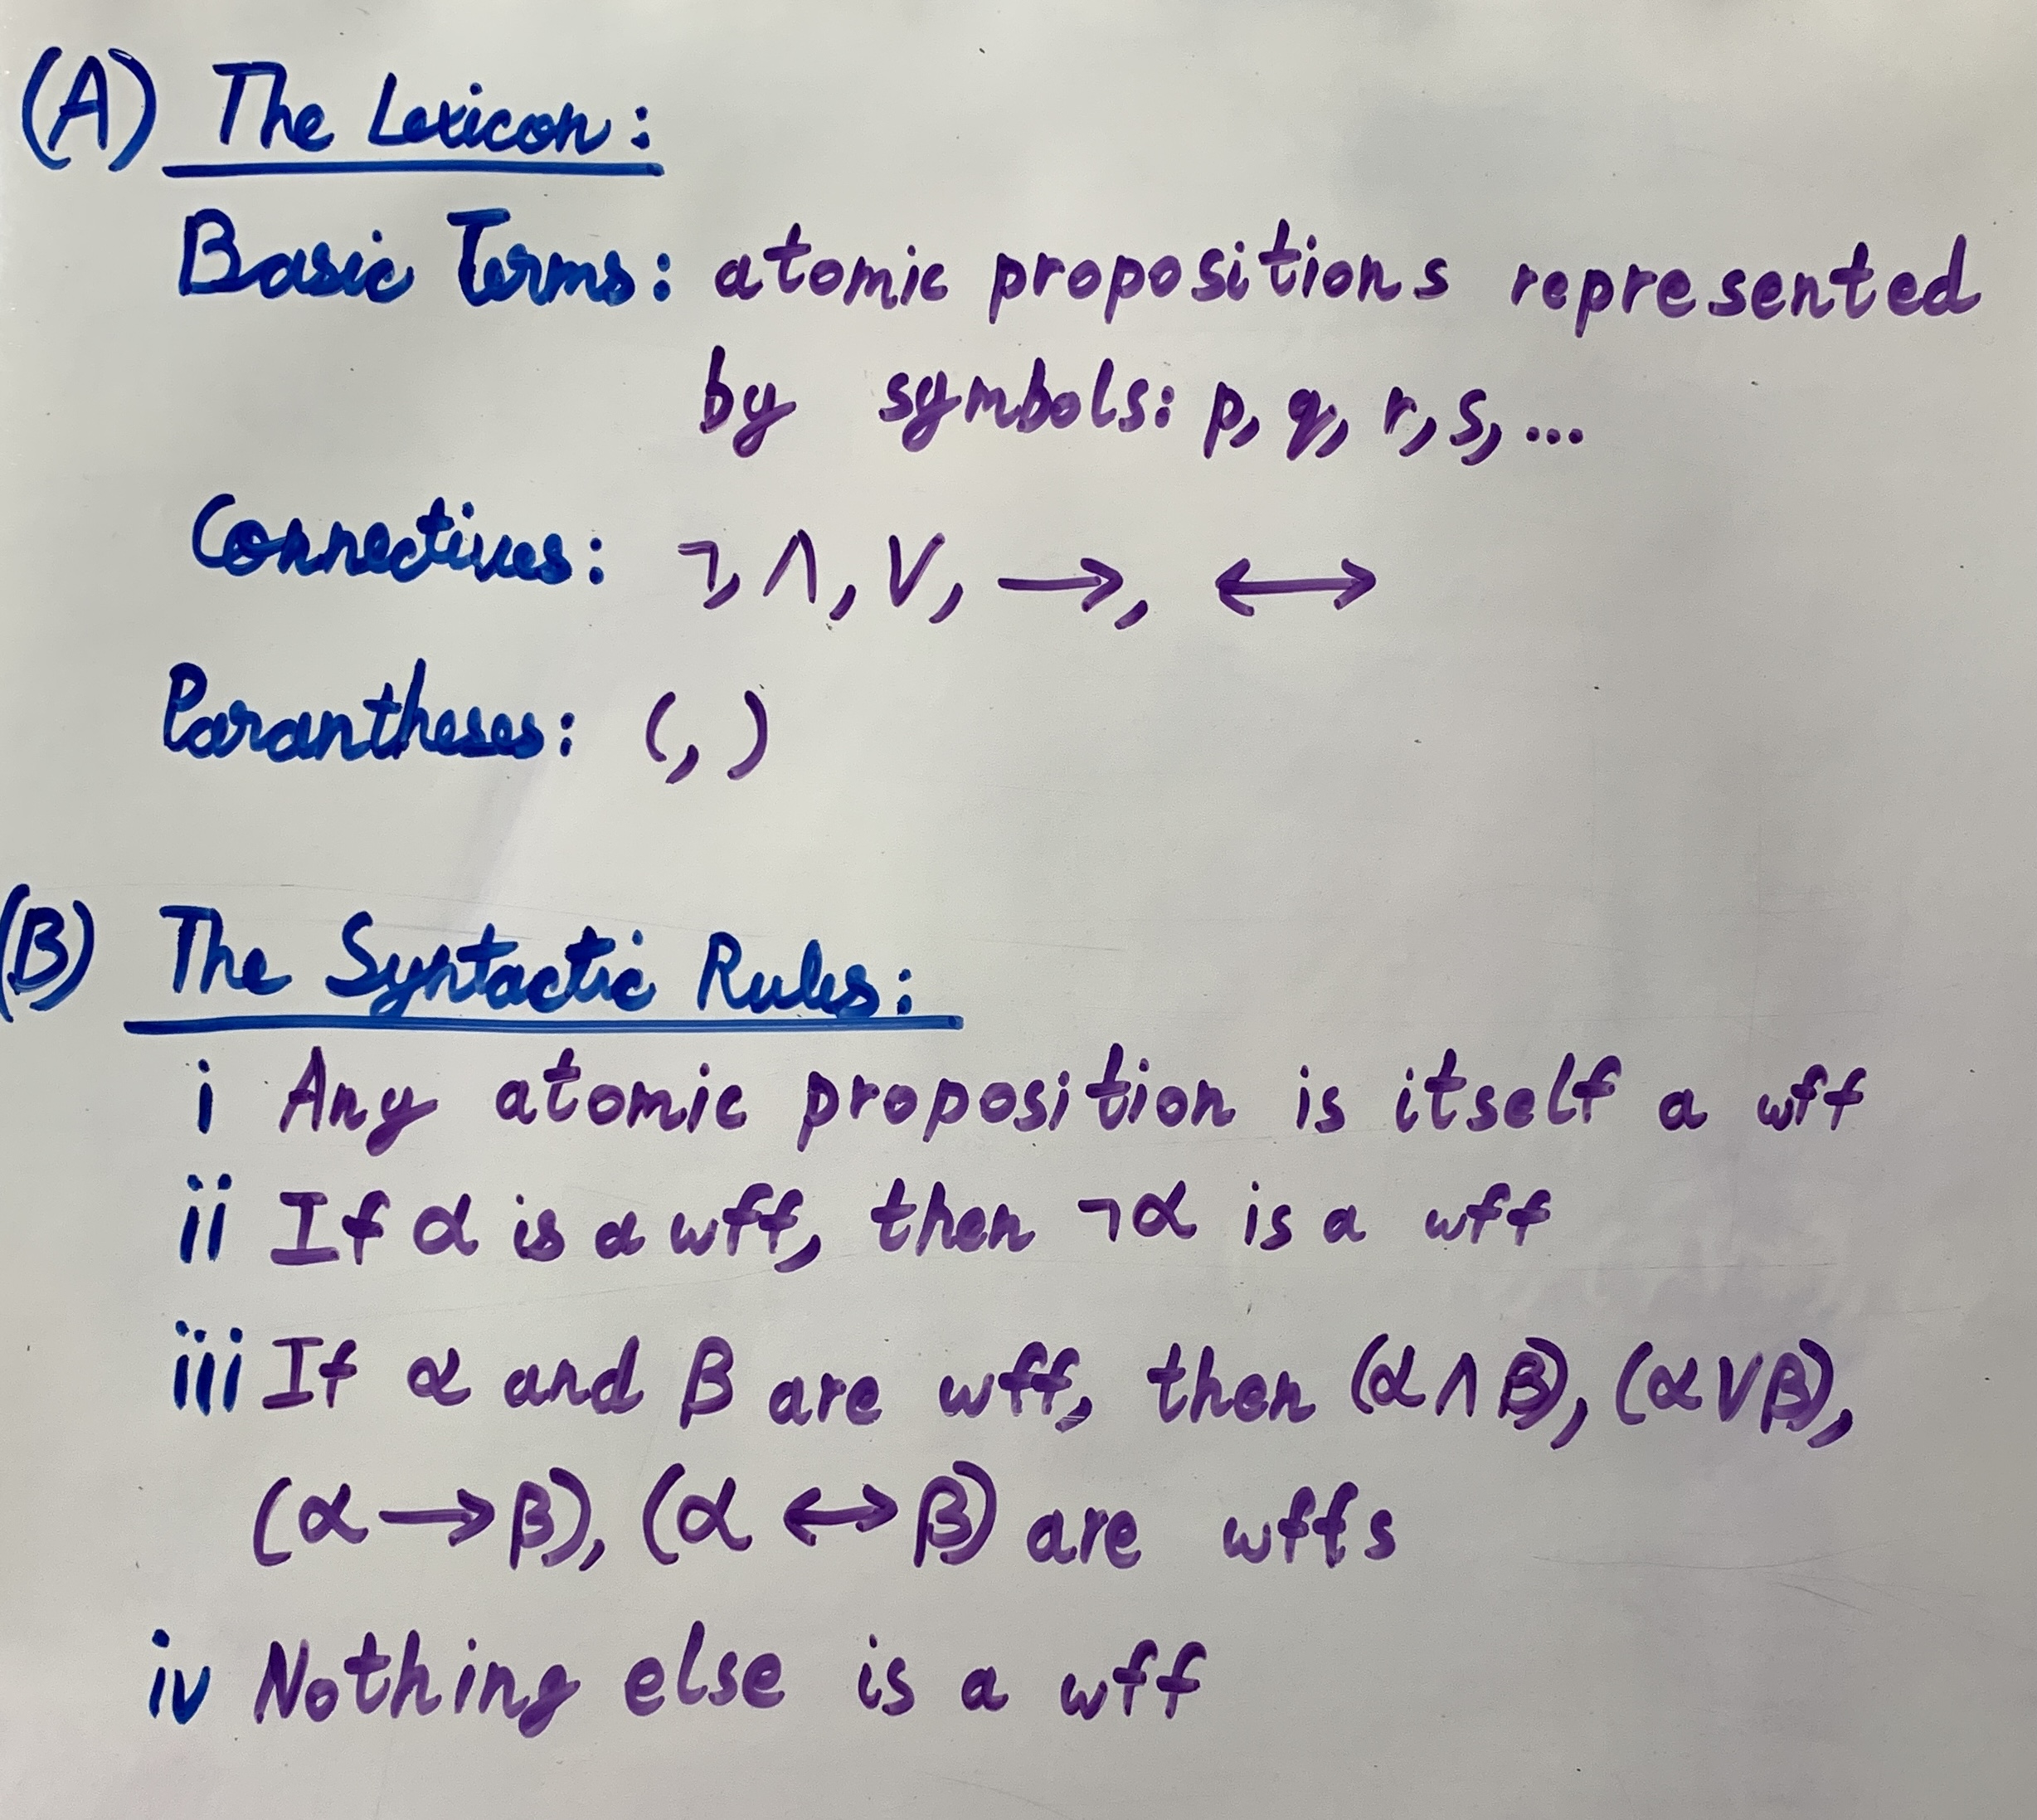 (A) The Lexicon:
Basic Terms: atomic propositions represented
by symbols: p, q, r, s, ...
Connectives: ¬, ∧, ∨, →, ↔
Parantheses: (, )
(B) The Syntactic Rules:
i Any atomic proposition is itself a wff
ii If α is a wff, then ¬α is a wff
iii If α and β are wff, then (α ∧ β), (α ∨ β),
(α → β), (α ↔ β) are wffs
iv Nothing else is a wff